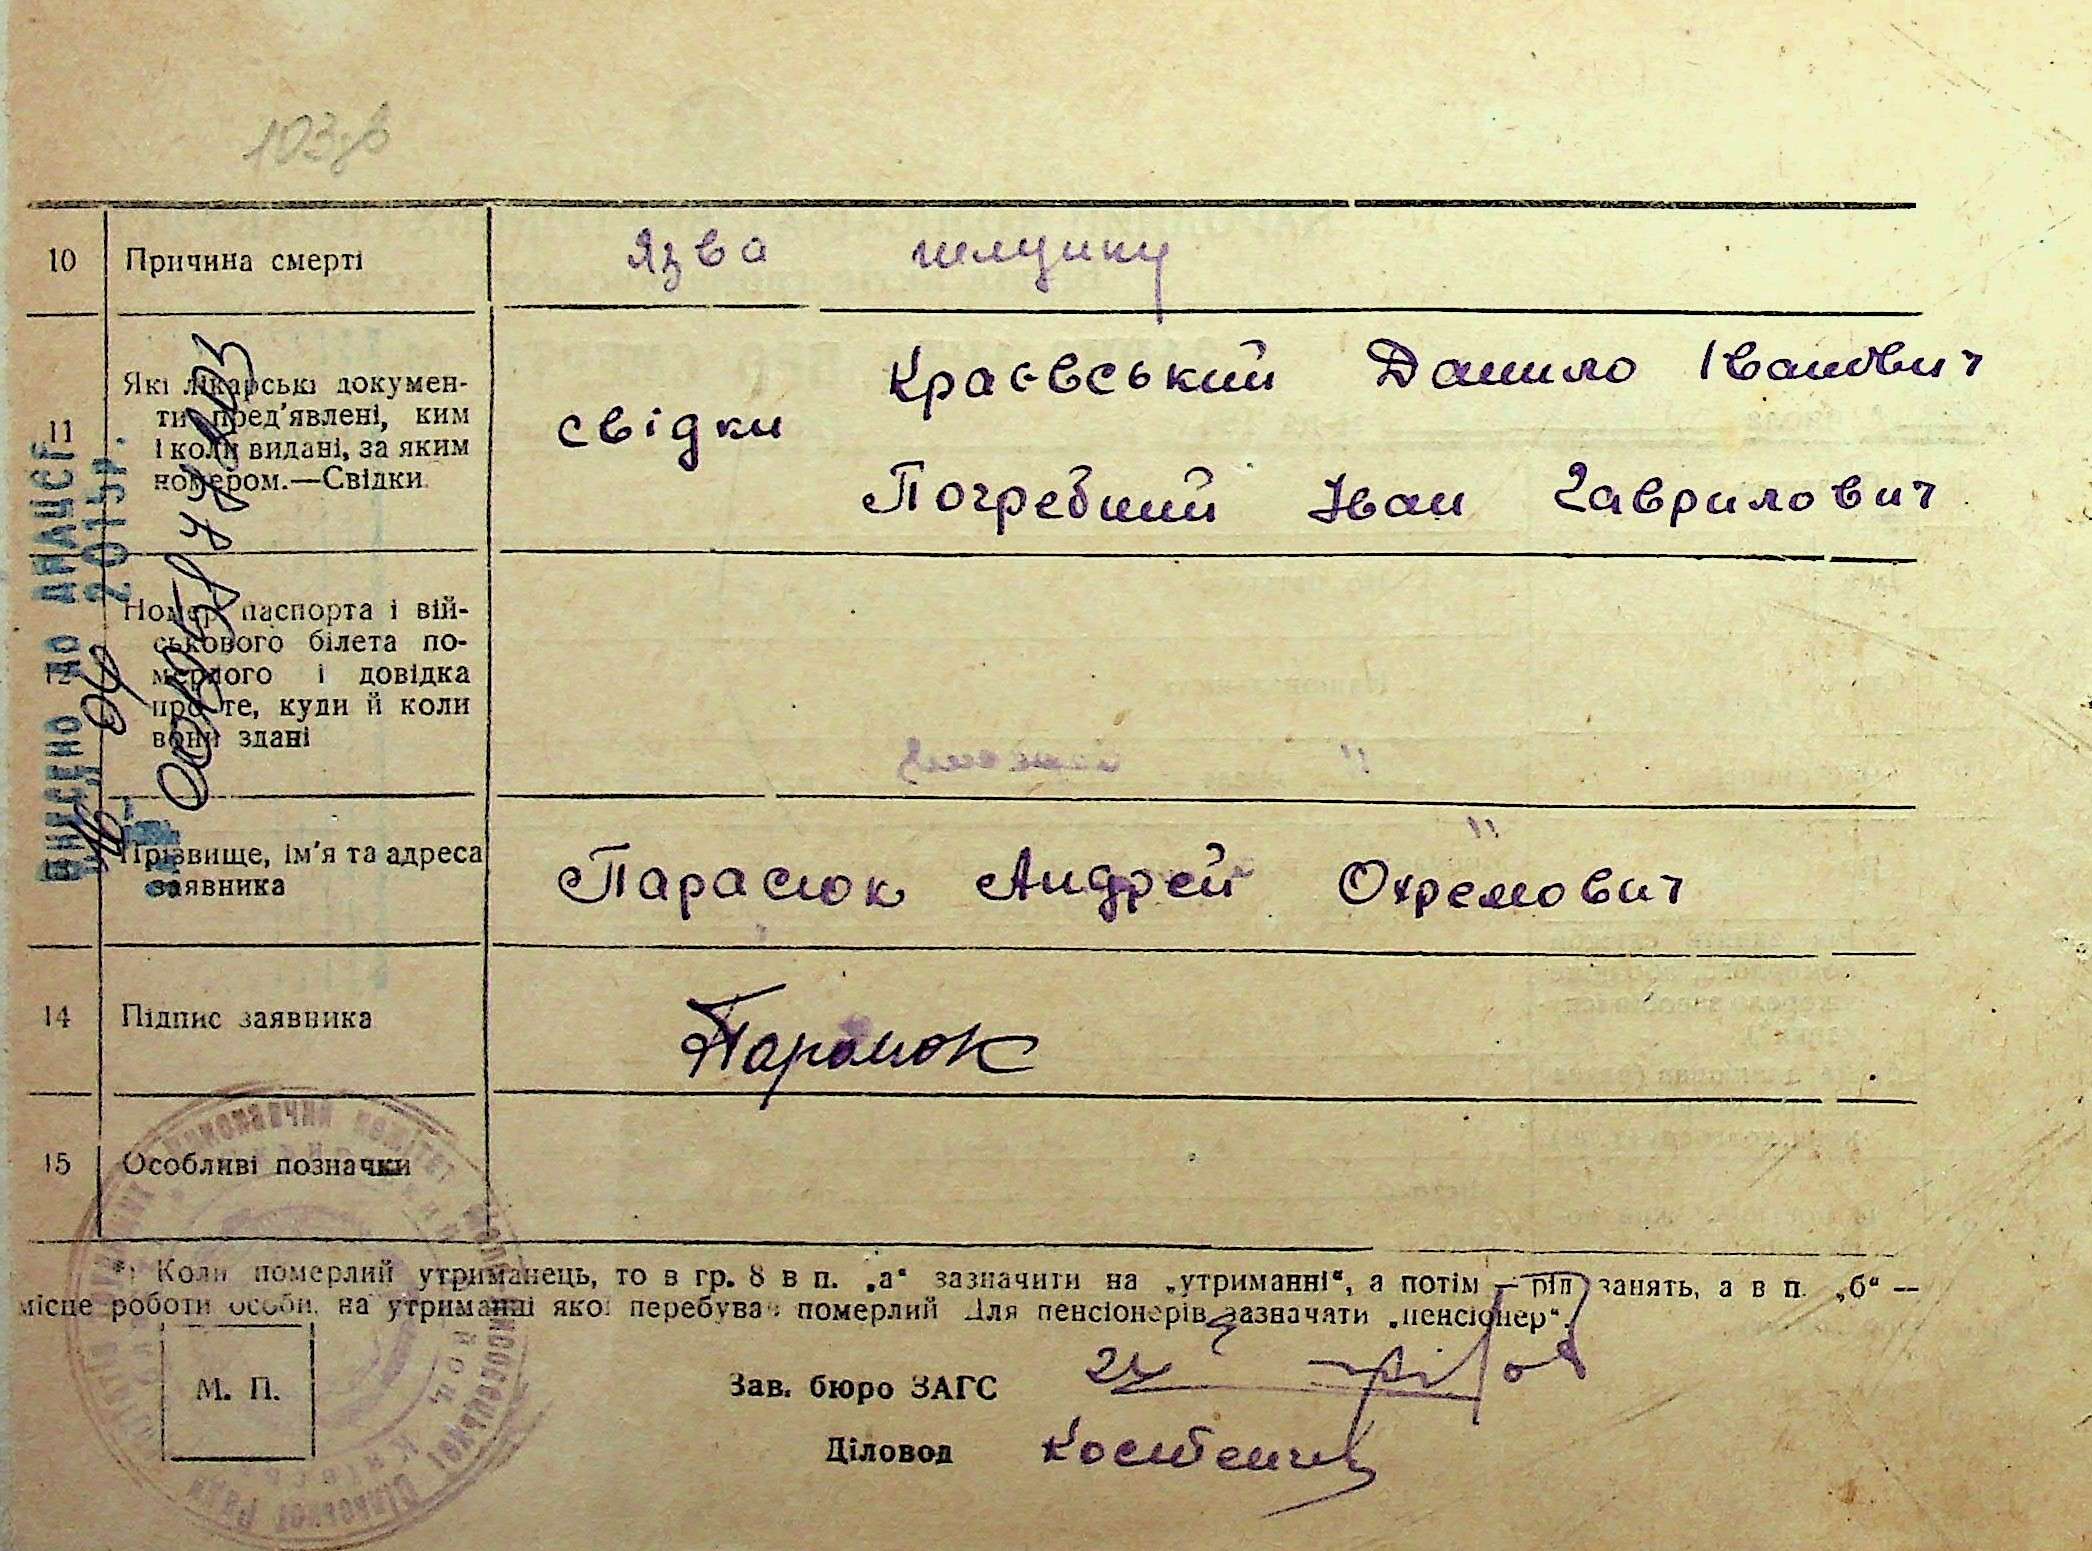 103зв
10 Причина смерті Язва шлунку
11 Які лікарські докумен-
ти пред'явлені, ким
і коли видані, за яким
номером.—Свідки
свідки Краєвський Данило Іванович
Погребний Іван Гаврилович
12 Номер паспорта і вій-
ськового білета по-
мерлого і довідка
про те, куди й коли
вони здані
Прізвище, ім'я та адреса
заявника
Парасюк Андрей Охремович
14 Підпис заявника Парасюк
15 Особливі позначки
*) Коли померлий утриманець, то в гр. 8 в п. „а“ зазначити на „утриманні“, а потім — рід занять, а в п. „б“ —
місце роботи особи, на утриманні якої перебував померлий Для пенсіонерів зазначати „пенсіонер“.
М. П.
Зав. бюро ЗАГС
Діловод
ВНЕСЕНО ДО ДРАЦСГ
16 04 201 р.
виконавчий комітет
сільської Ради